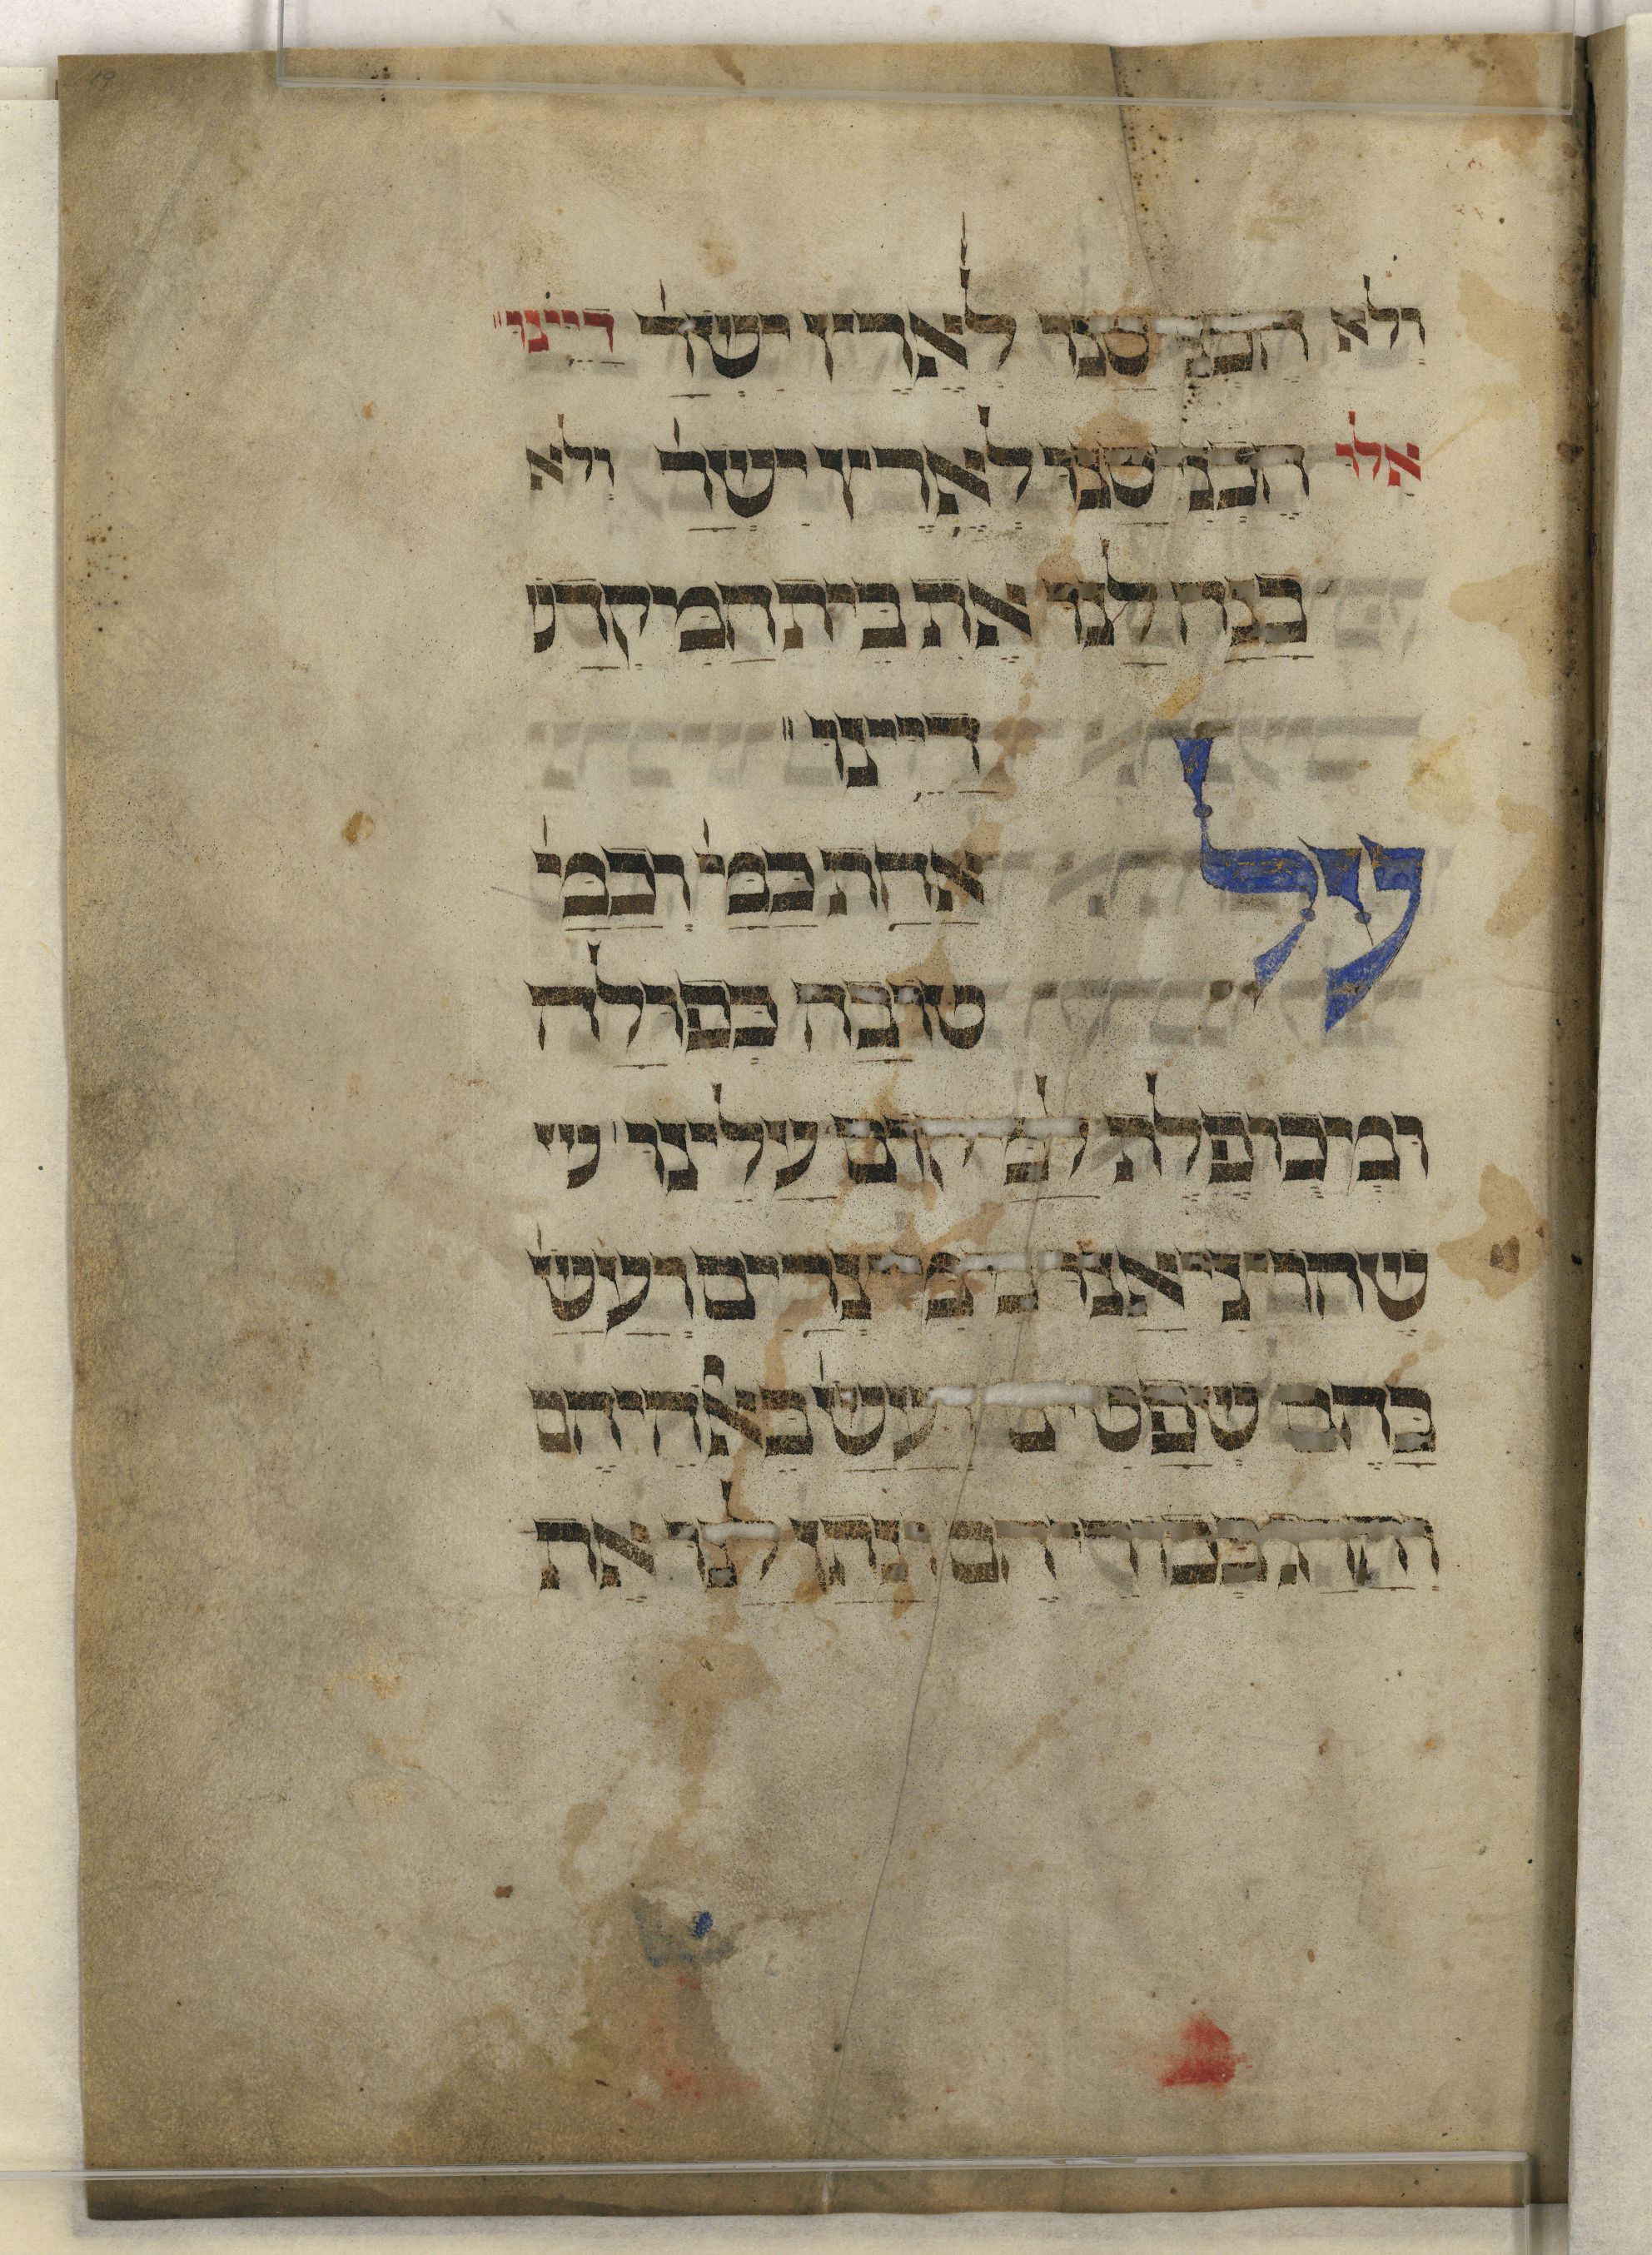 ולא הכניסנו לארץ ישר׳ דיינו
אלו הכניסנו לארץ ישר׳ ולא
בנה לנו את בית המקדש
דיינו
על אחת כמ׳ וכמ׳
טובה כפולה
ומכופלת למקום עלינו ש
שהוציאנו ממצרים ועש׳
בהם שפטים ועש׳ באלהיהם
והרג בכוריהם ונתן לנו את